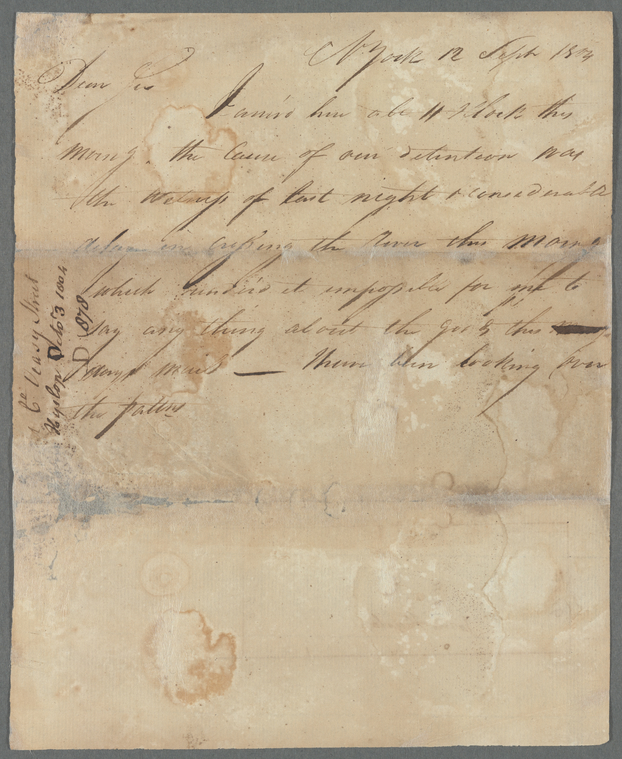 N York 12 Sept 1804
Dear Sir
I arriv'd here abt 11 O'Clock this
morng. the cause of our detention was
the wetness of last night & considerable
delays in crossing the River this morng
which render'd it impossible for me to
say any thing about the goods this
days mail — I have been looking over
the
Hyslop 1804
D 1878